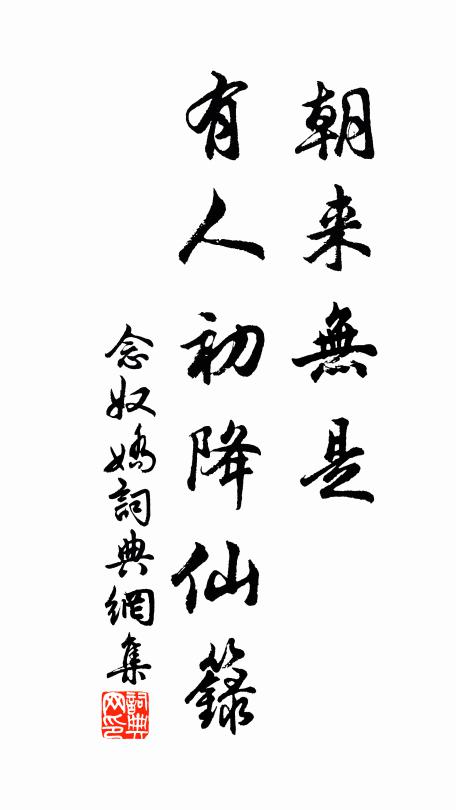 朝来無是
有人初降仙籙
念奴嬌詞典網集
詞典網印